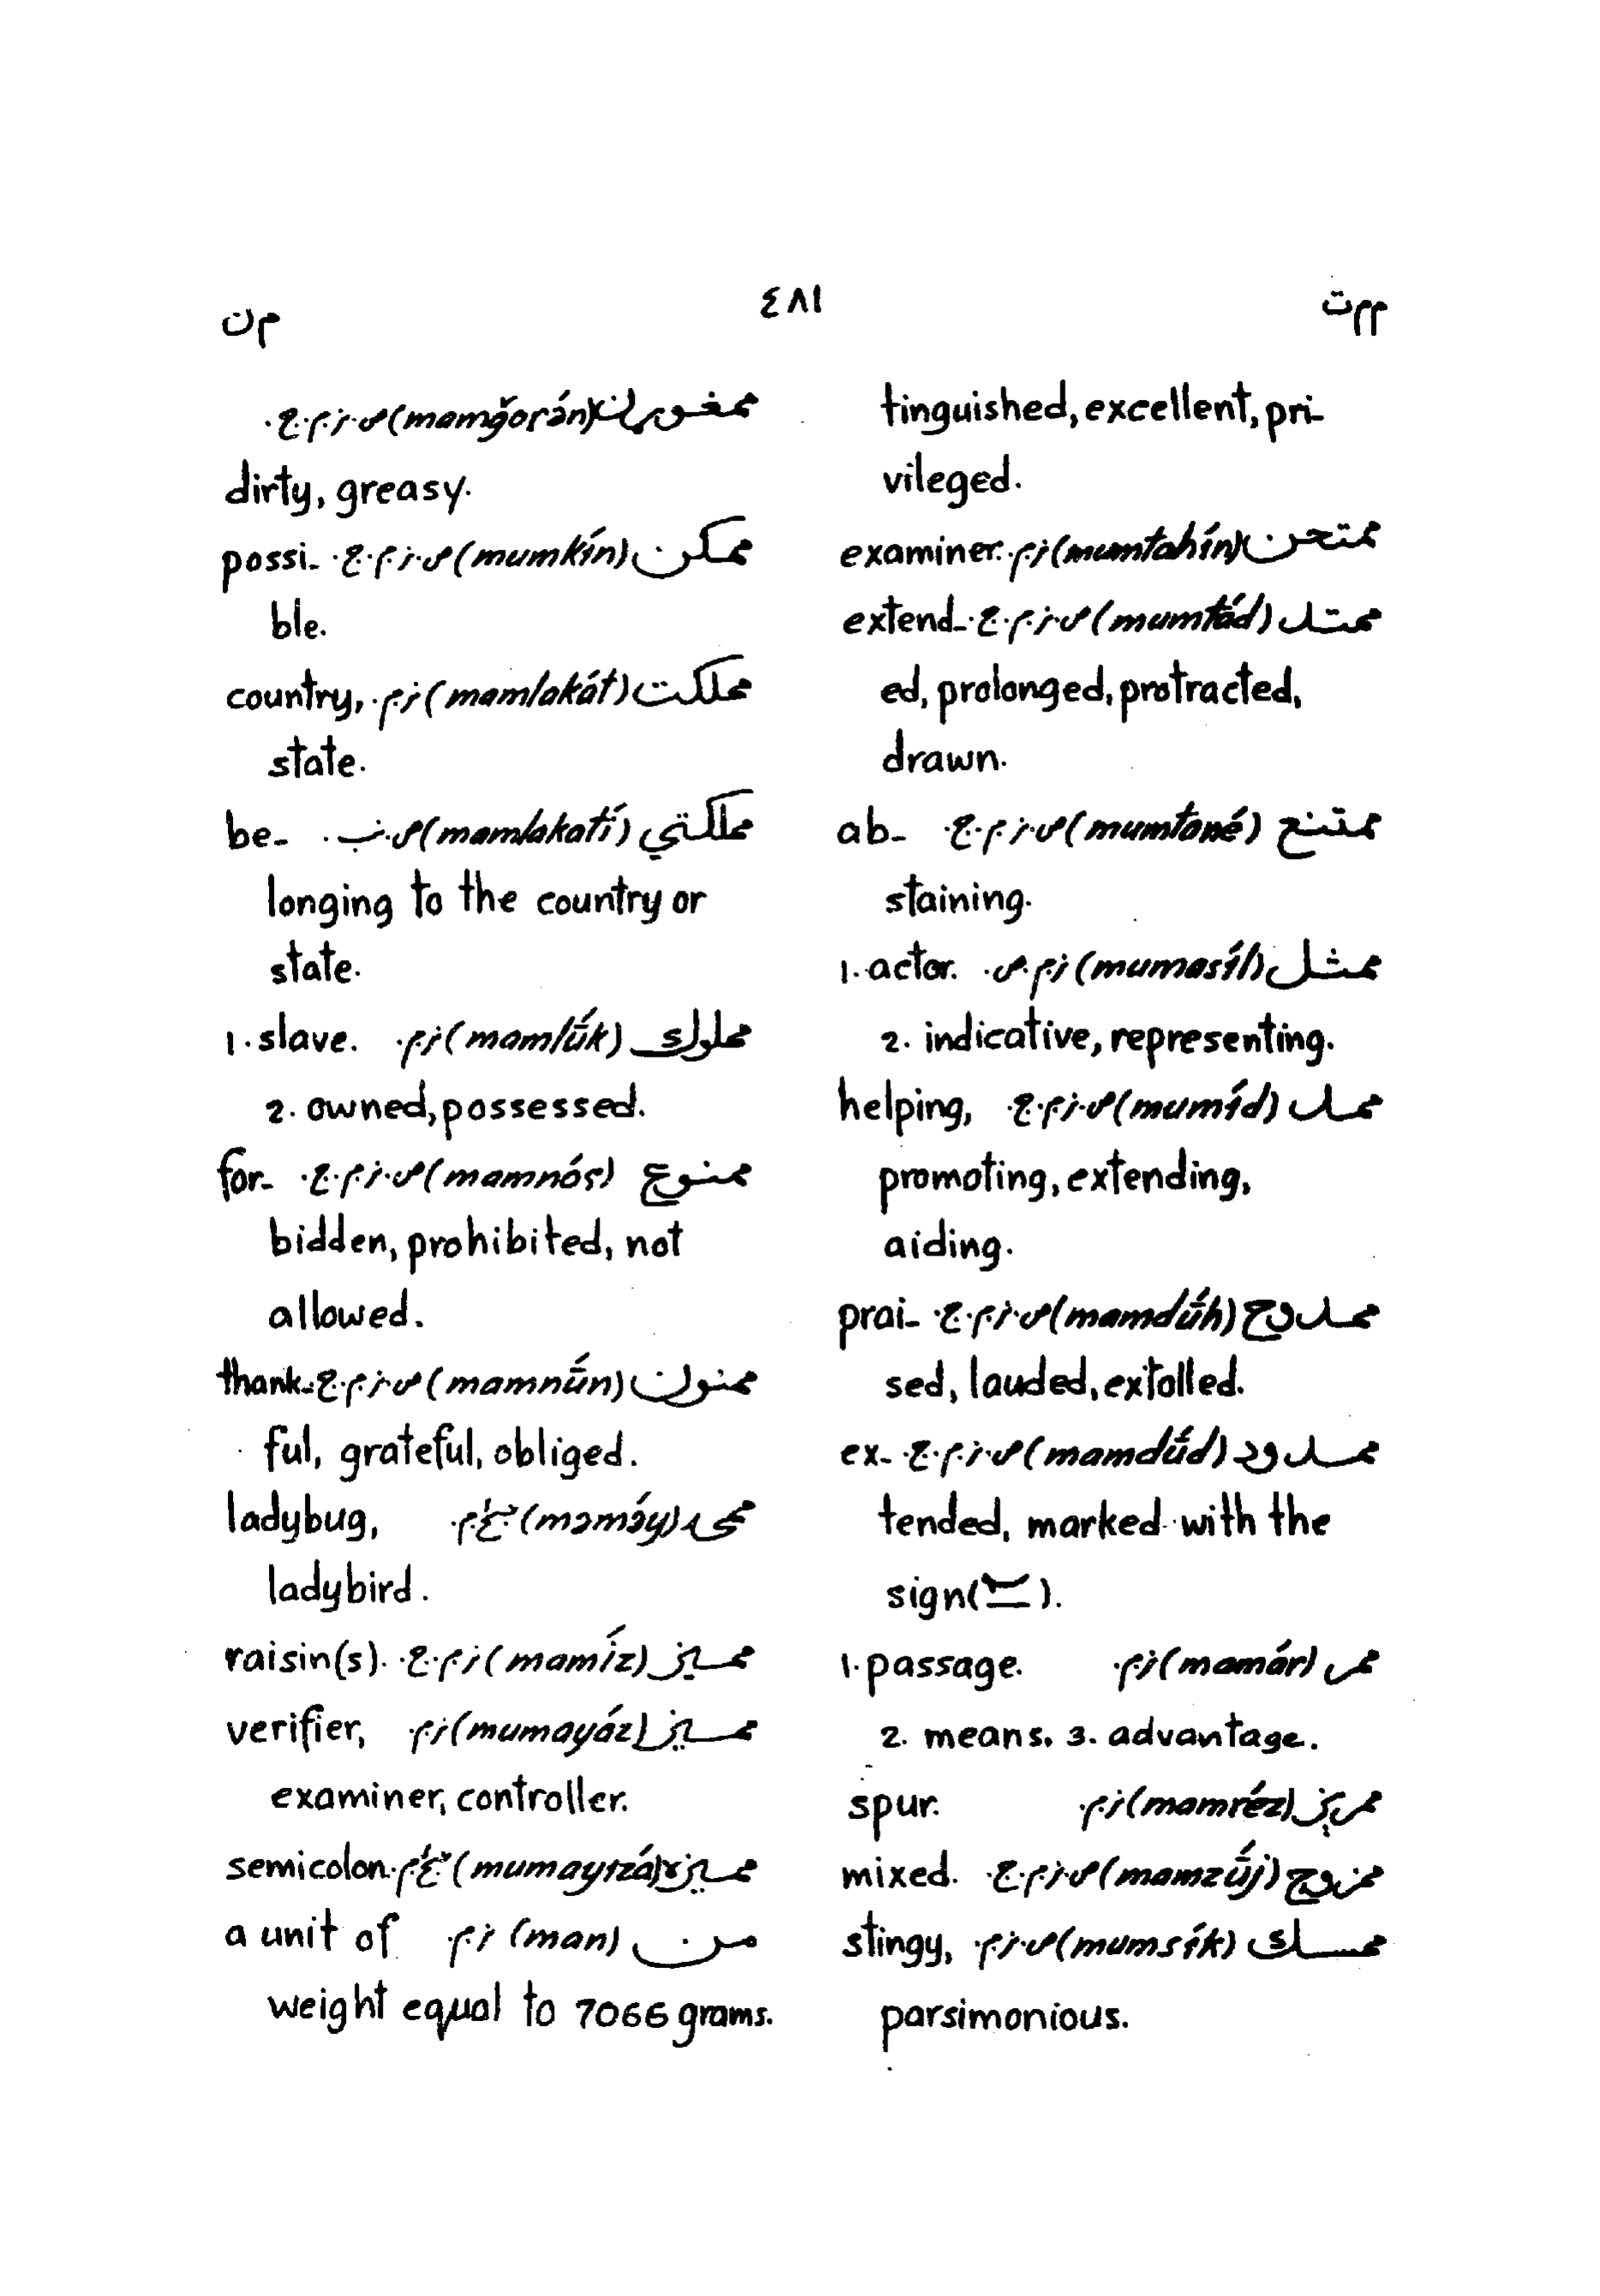 ممت
٤٨١
م ن
tinguished, excellent, pri-
vileged.
ممتحن (mumtahín) ز.م. examiner.
ممتد (mumtád) ص.ز.م.ج. extend-
ed, prolonged, protracted,
drawn.
ممتنع (mumtané) ص.ز.م.ج. ab-
staining.
ممثل (mumasíl) ز.م.ص. 1. actor.
2. indicative, representing.
ممد (mumíd) ص.ز.م.ج. helping,
promoting, extending,
aiding.
ممدوح (mamdū́h) ص.ز.م.ج. prai-
sed, lauded, extolled.
ممدود (mamdū́d) ص.ز.م.ج. ex-
tended, marked with the
sign( ).
ممر (mamár) ز.م. 1. passage.
2. means. 3. advantage.
ممرېز (mamréz) ز.م. spur.
ممزوج (mamzū́j) ص.ز.م.ج. mixed.
ممسك (mumsík) ص.ز.م. stingy,
parsimonious.
ممغوړن (mamğoṛán) ص.ز.م.ج.
dirty, greasy.
ممكن (mumkín) ص.ز.م.ج. possi-
ble.
مملكت (mamlakát) ز.م. country,
state.
مملكتي (mamlakatí) ص.ن. be-
longing to the country or
state.
مملوك (mamlū́k) ز.م. 1. slave.
2. owned, possessed.
ممنوع (mamnóς) ص.ز.م.ج. for-
bidden, prohibited, not
allowed.
ممنون (mamnū́n) ص.ز.م.ج. thank-
ful, grateful, obliged.
(məmə́y) ladybug,
ladybird.
مميز (mamíz) ز.م.ج. raisin(s).
مميز (mumayáz) ز.م. verifier,
examiner, controller.
مميزه (mumayɪzá) semicolon.
من (man) ز.م. a unit of
weight equal to 7066 grams.